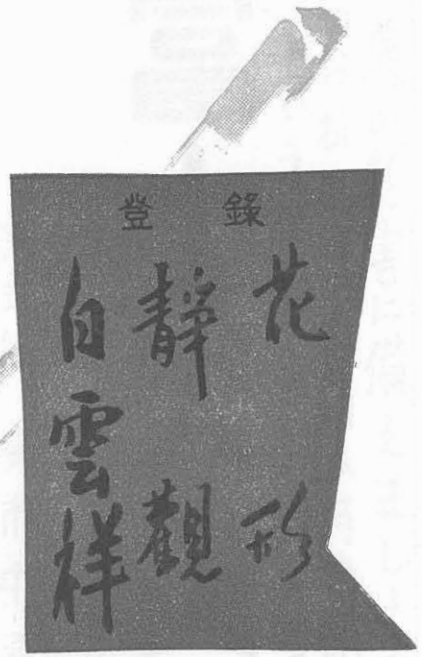 登錄
花形
靜觀
白雲祥